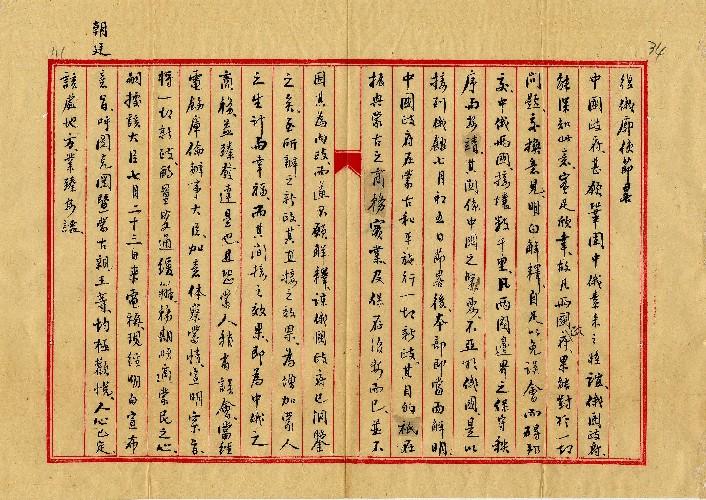 34
復俄廓使節畧
中國政府甚願鞏固中俄素來之睦誼俄國政府
能深知此意實足欣幸故凡兩國政府果能對於一切
問題交換意見明白解釋自足以免誤會而礙邦
交中俄兩國接壤數千里凡兩國邊界之保守秩
序而安靖其關係中國之緊要不亞於俄國是以
接到俄館七月初五日節畧後本部即當面解明
中國政府在蒙古和平施行一切新政其目的祗在
振興蒙古之商務實業及保存治安而已並不
因其為內政而遂不願解釋諒俄國政府已洞鑒
之矣至所辦之新政其直接之效果為增加蒙人
之生計而幸福而其間接之效果即為中俄之
商務益臻發達是也且恐蒙人稍有誤會當經
電飭庫倫辦事大臣加意體察蒙情宣明宗旨
將一切新政酌量變通緩辦務期順適蒙民之心
嗣據該大臣七月二十三日來電稱現經明白宣布
朝廷
意旨呼圖克圖暨蒙古親王等均極歡悅人心已定
該處地方業臻安謐